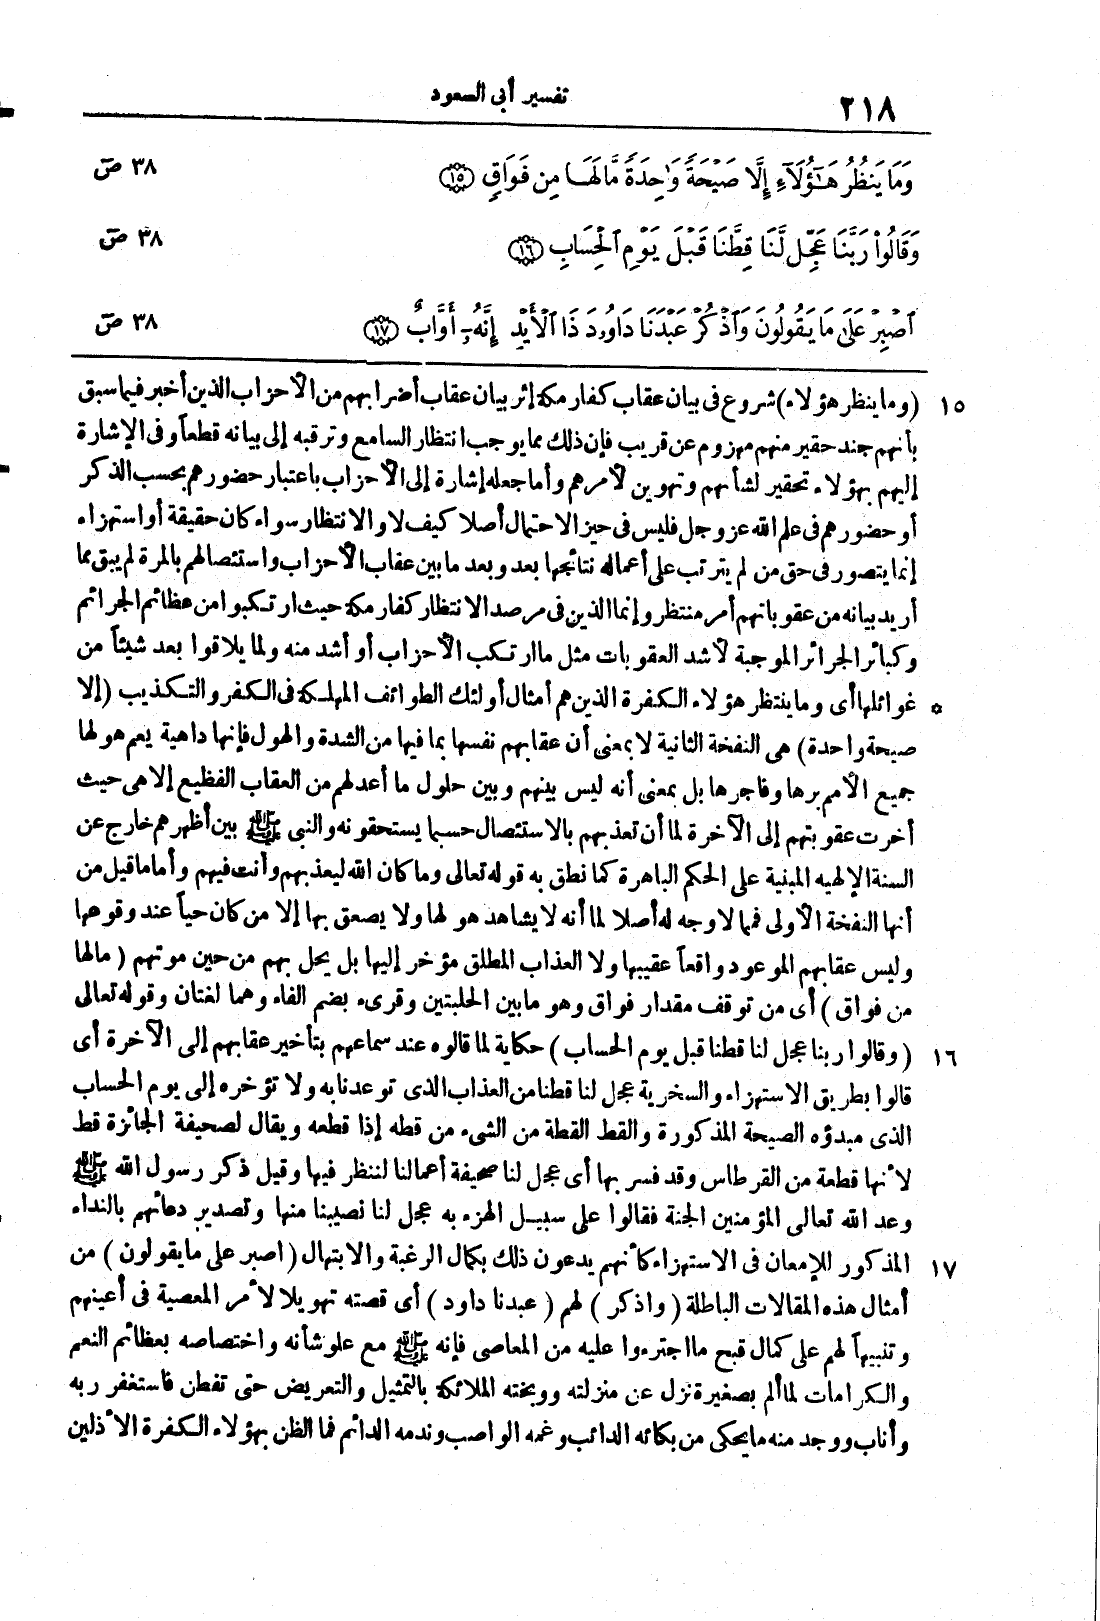 ٢١٨
تفسير أبي السعود
وَمَا يَنظُرُ هَٰٓؤُلَآءِ إِلَّا صَيْحَةً وَٰحِدَةً مَّا لَهَا مِن فَوَاقٍ ﴿١٥﴾
٣٨ صٓ
وَقَالُوا۟ رَبَّنَا عَجِّل لَّنَا قِطَّنَا قَبْلَ يَوْمِ ٱلْحِسَابِ ﴿١٦﴾
٣٨ صٓ
ٱصْبِرْ عَلَىٰ مَا يَقُولُونَ وَٱذْكُرْ عَبْدَنَا دَاوُۥدَ ذَا ٱلْأَيْدِ إِنَّهُۥٓ أَوَّابٌ ﴿١٧﴾
٣٨ صٓ
١٥ (وما ينظر هؤلاء) شروع فى بيان عقاب كفار مكة إثر بيان عقاب أضرابهم من الأحزاب الذين أخبر فيما سبق
بأنهم جند حقير منهم مهزوم عن قريب فإن ذلك مما يوجب انتظار السامع وترقبه إلى بيانه قطعاً وفى الإشارة
إليهم بهؤلاء تحقير لشأنهم وتهوين لأمرهم وأما جعله إشارة إلى الأحزاب باعتبار حضورهم بحسب الذكر
أو حضورهم فى علم الله عز وجل فليس فى حيز الاحتمال أصلا كيف لا والانتظار سواء كان حقيقة أو استهزاء
إنما يتصور فى حق من لم يترتب على أعماله نتائجها بعد وبعد ما بين عقاب الأحزاب واستئصالهم بالمرة لم يبق مما
أريد بيانه من عقوباتهم أمر منتظر وإنما الذين فى مرصد الانتظار كفار مكة حيث ارتكبوا من عظائم الجرائم
وكبائر الجرائر الموجبة لأشد العقوبات مثل ما ارتكب الأحزاب أو أشد منه ولما يلاقوا بعد شيئاً من
* غوائلها أى وما ينتظر هؤلاء الكفرة الذين هم أمثال أولئك الطوائف المهلكة فى الكفر والتكذيب (إلا
صيحة واحدة) هى النفخة الثانية لا بمعنى أن عقابهم نفسها بما فيها من الشدة والهول فإنها داهية يعم هولها
جميع الأمم برها وفاجرها بل بمعنى أنه ليس بينهم وبين حلول ما أعد لهم من العقاب الفظيع إلا هى حيث
أخرت عقوبتهم إلى الآخرة لما أن تعذبهم بالاستئصال حسبما يستحقونه والنبى ﷺ بين أظهرهم خارج عن
السنة الإلهيه المبنية على الحكم الباهرة كما نطق به قوله تعالى وما كان الله ليعذبهم وأنت فيهم وأما ما قيل من
أنها النفخة الأولى فمما لا وجه له أصلا لما أنه لا يشاهد هولها ولا يصعق بها إلا من كان حياً عند وقوعها
وليس عقابهم الموعود واقعاً عقيبها ولا العذاب المطلق مؤخر إليها بل يحل بهم من حين موتهم (مالها
من فواق) أى من توقف مقدار فواق وهو ما بين الحلبتين وقرىء بضم الفاء وهما لغتان وقوله تعالى
١٦ (وقالوا ربنا عجل لنا قطنا قبل يوم الحساب) حكاية لما قالوه عند سماعهم بتأخير عقابهم إلى الآخرة أى
قالوا بطريق الاستهزاء والسخرية عجل لنا قطنا من العذاب الذى توعدنا به ولا تؤخره إلى يوم الحساب
الذى مبدؤه الصيحة المذكورة والقط القطة من الشىء من قطه إذا قطعه ويقال لصحيفة الجائزة قط
لأنها قطعة من القرطاس وقد فسر بها أى عجل لنا صحيفة أعمالنا لننظر فيها وقيل ذكر رسول الله ﷺ
وعد الله تعالى المؤمنين الجنة فقالوا على سبيل الهزء به عجل لنا نصيبنا منها وتصدير دعائهم بالنداء
١٧ المذكور للإمعان فى الاستهزاء كأنهم يدعون ذلك بكمال الرغبة والابتهال (اصبر على ما يقولون) من
أمثال هذه المقالات الباطلة (واذكر) لهم (عبدنا داود) أى قصته تهويلا لأمر المعصية فى أعينهم
وتنبيهاً لهم على كمال قبح ما اجترءوا عليه من المعاصى فإنه ﷺ مع علو شأنه واختصاصه بعظائم النعم
والكرامات لما ألم بصغيرة نزل عن منزلته ووبخته الملائكة بالتمثيل والتعريض حتى تفطن فاستغفر ربه
وأناب ووجد منه ما يحكى من بكائه الدائب وغمه الواصب وندمه الدائم فما الظن بهؤلاء الكفرة الأذلين